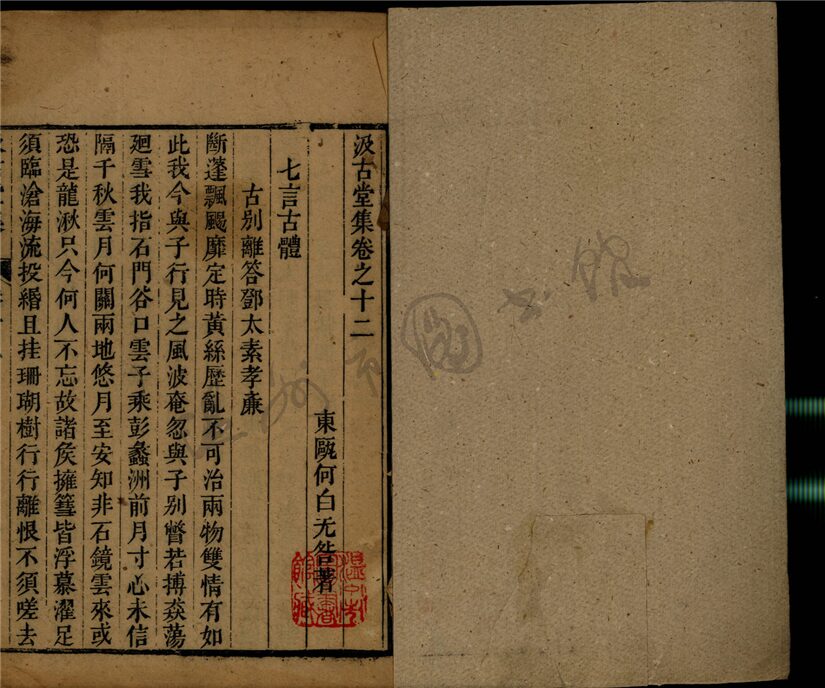 汲古堂集卷之十二
東甌何白无咎著
七言古體
古別離答鄧太素孝廉
斷蓬飄颺靡定時黃絲歷亂不可治兩物雙情有如
此我今與子行見之風波奄忽與子別瞥若搏猋蕩
廻雲我指石門谷口雲子乘彭蠡洲前月寸心未信
隔千秋雲月何關兩地悠月至安知非石鏡雲來或
恐是龍湫只今何人不忘故諸矦擁篲皆浮慕濯足
須臨滄海流投緡且挂珊瑚樹行行離恨不須嗟去